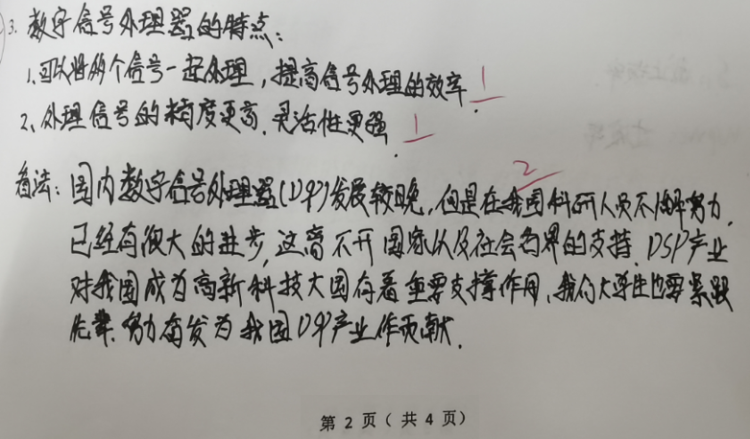 3. 数字信号处理器的特点：
1、可以将两个信号一起处理，提高信号处理的效率． 1
2、处理信号的精度更高、灵活性更强． 1
看法：国内数字信号处理器(DSP)发展较晚，但是在我国科研人员不懈努力， 2
已经有很大的进步，这离不开国家以及社会各界的支持．DSP产业
对我国成为高新科技大国有着重要支撑作用，我们大学生也要紧跟
先辈．努力奋发为我国DSP产业作贡献．
第 2 页（ 共 4 页）